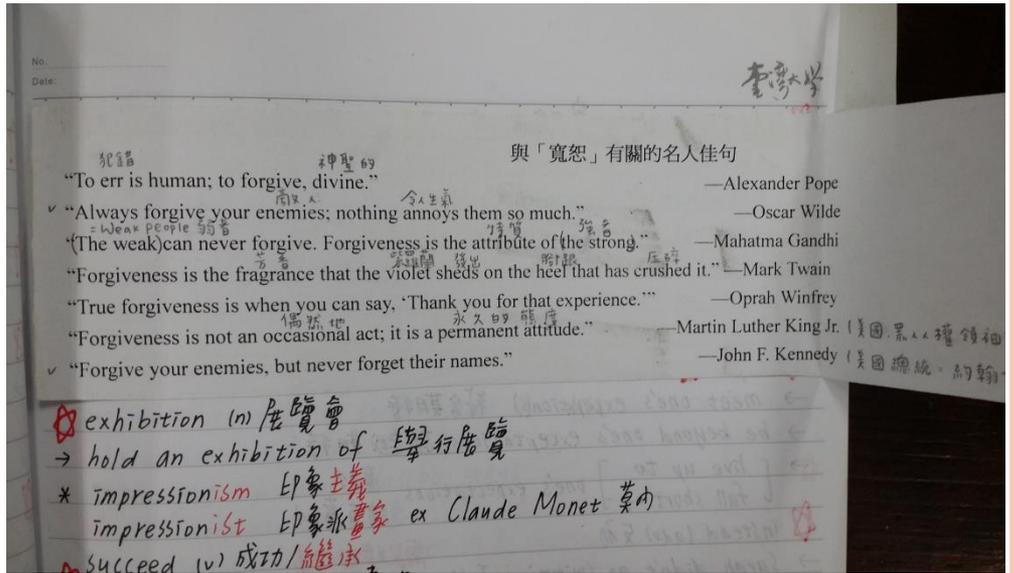 No.
Date:
臺灣大學
與「寬恕」有關的名人佳句
犯錯 神聖的
“To err is human; to forgive, divine.” —Alexander Pope
敵人 令人生氣
✓ “Always forgive your enemies; nothing annoys them so much.” —Oscar Wilde
=Weak people 弱者 特質 強者
“(The weak)can never forgive. Forgiveness is the attribute of (the strong).” —Mahatma Gandhi
芳香 紫羅蘭 發出 腳跟 壓碎
“Forgiveness is the fragrance that the violet sheds on the heel that has crushed it.” —Mark Twain
“True forgiveness is when you can say, ‘Thank you for that experience.’” —Oprah Winfrey
偶然地 永久的 態度
“Forgiveness is not an occasional act; it is a permanent attitude.” —Martin Luther King Jr. (美國.黑人人權領袖
✓ “Forgive your enemies, but never forget their names.” —John F. Kennedy (美國總統。約翰
exhibition (n) 展覽會
→ hold an exhibition of 舉行展覽
* impressionism 印象主義
impressionist 印象派畫家 ex Claude Monet 莫內
succeed (v) 成功/繼承